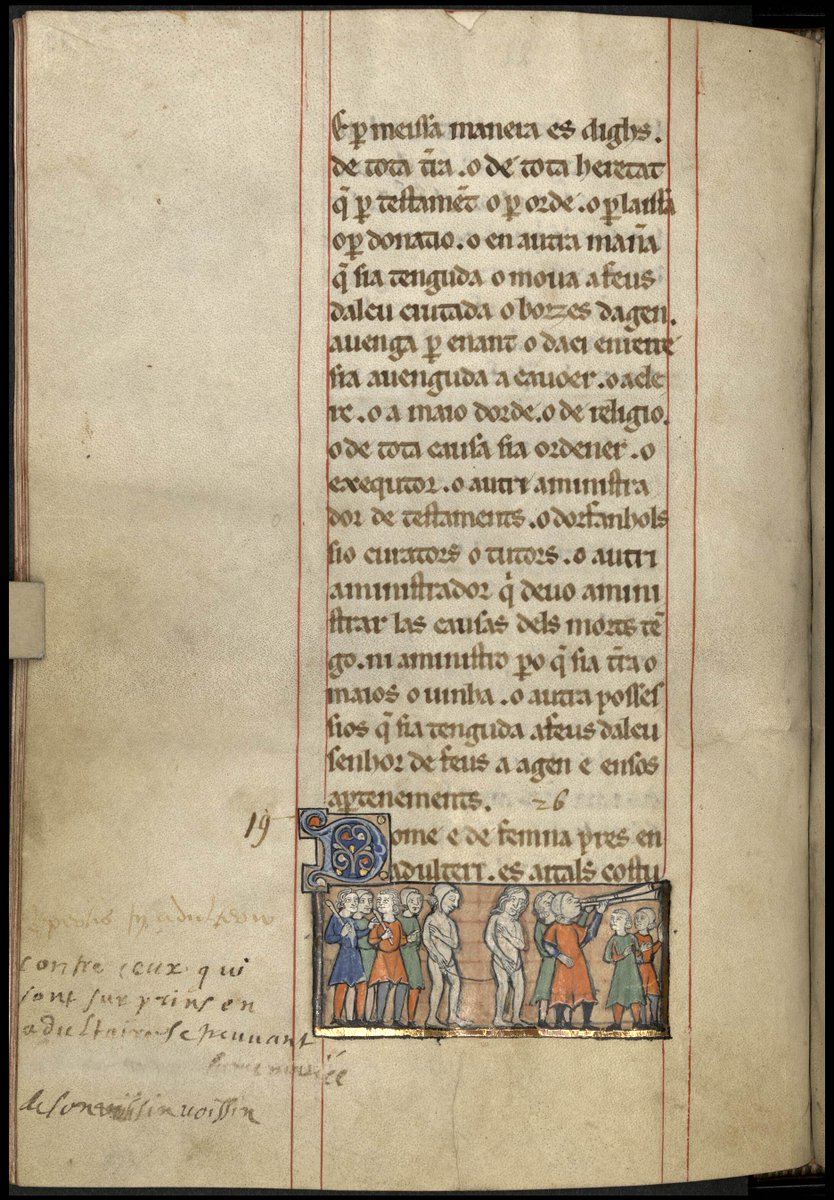 E p̱ meissa manera es dighs.
de tota t̃ra . o de tota heretat
q̃ p̱ testamẽt o p̱ orde . o p̱ laissa
o p̱ donatio . o en autra maña
q̃ sia tenguda o moua a feus
dalcu ciutada o borzes dagen.
auenga p̱ enant o daci enreire
sia auenguda a cauoer . o a cle
re . o a maio dorde . o de religio.
o de tota causa sia ordener . o
exequtor . o autri aminiſtra
dor de testaments . o dorfanhols
sio curators o tutors . o autri
aminiſtrador q̃ deuo amini
strar las causas dels morts tẽ
go . ni aminiſtro p̱o q̃ sia t̃ra o
maios o uinha . o autra posses
sios q̃ sia tenguda a feus dalcu
senhor de feus a agen e en sos
ap̱tenements . 26
19
Dome e de femna p̱res en
adulteri . es aitals costu
contre ceux qui
sont surprins en